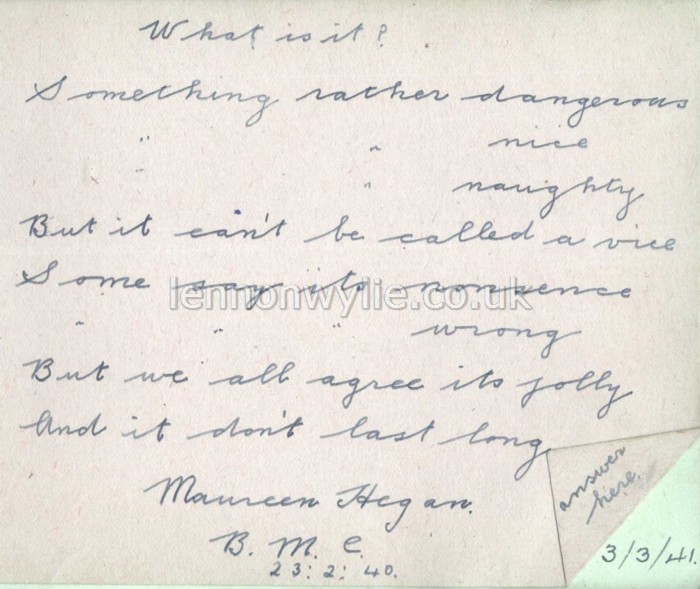 What is it?
Something rather dangerous
" " nice
" " naughty
But it can't be called a vice
Some say its nonsence
" " " wrong
But we all agree its jolly
And it don't last long
Maureen Hegan.
B. M. C.
23: 2: 40.
answer
here.
3/3/41.
lennonwylie.co.uk